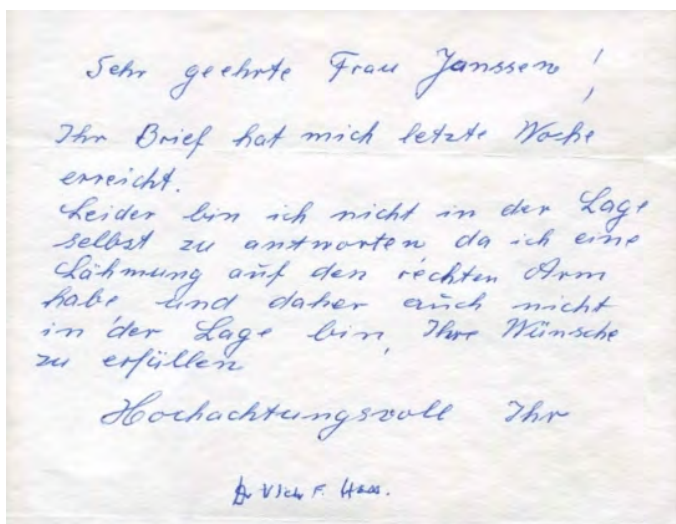 Sehr geehrte Frau Janssen!
Ihr Brief hat mich letzte Woche
erreicht.
Leider bin ich nicht in der Lage
selbst zu antworten da ich eine
Lähmung auf den rechten Arm
habe und daher auch nicht
in der Lage bin, Ihre Wünsche
zu erfüllen
Hochachtungsvoll Ihr
Dr F. Haas.